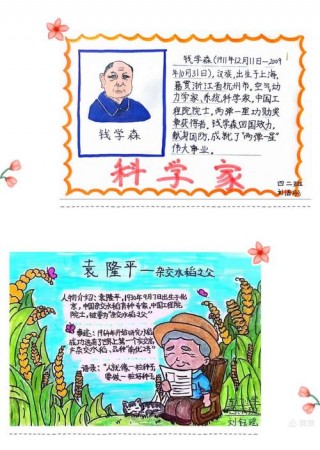 钱学森(1911年12月11日—2009
年10月31日),汉族,出生于上海,
籍贯浙江省杭州市。空气动
力学家,系统科学家,中国工
程院院士,两弹一星功勋奖
章获得者。钱学森回国效力,
献身国防,成就了“两弹一星”
伟大事业。
钱学森
科学家
四二班
袁隆平—杂交水稻之父
人物介绍:袁隆平,1930年9月7日出生于北
京,中国杂交水稻育种专家,中国工程院
院士,被誉为“杂交水稻之父”
事迹:1964年开始研究水稻
成功选育了世界上第一个实用高
产杂交水稻,品种“南优2号”
语录:“人就像一粒种子
要做一粒好种子